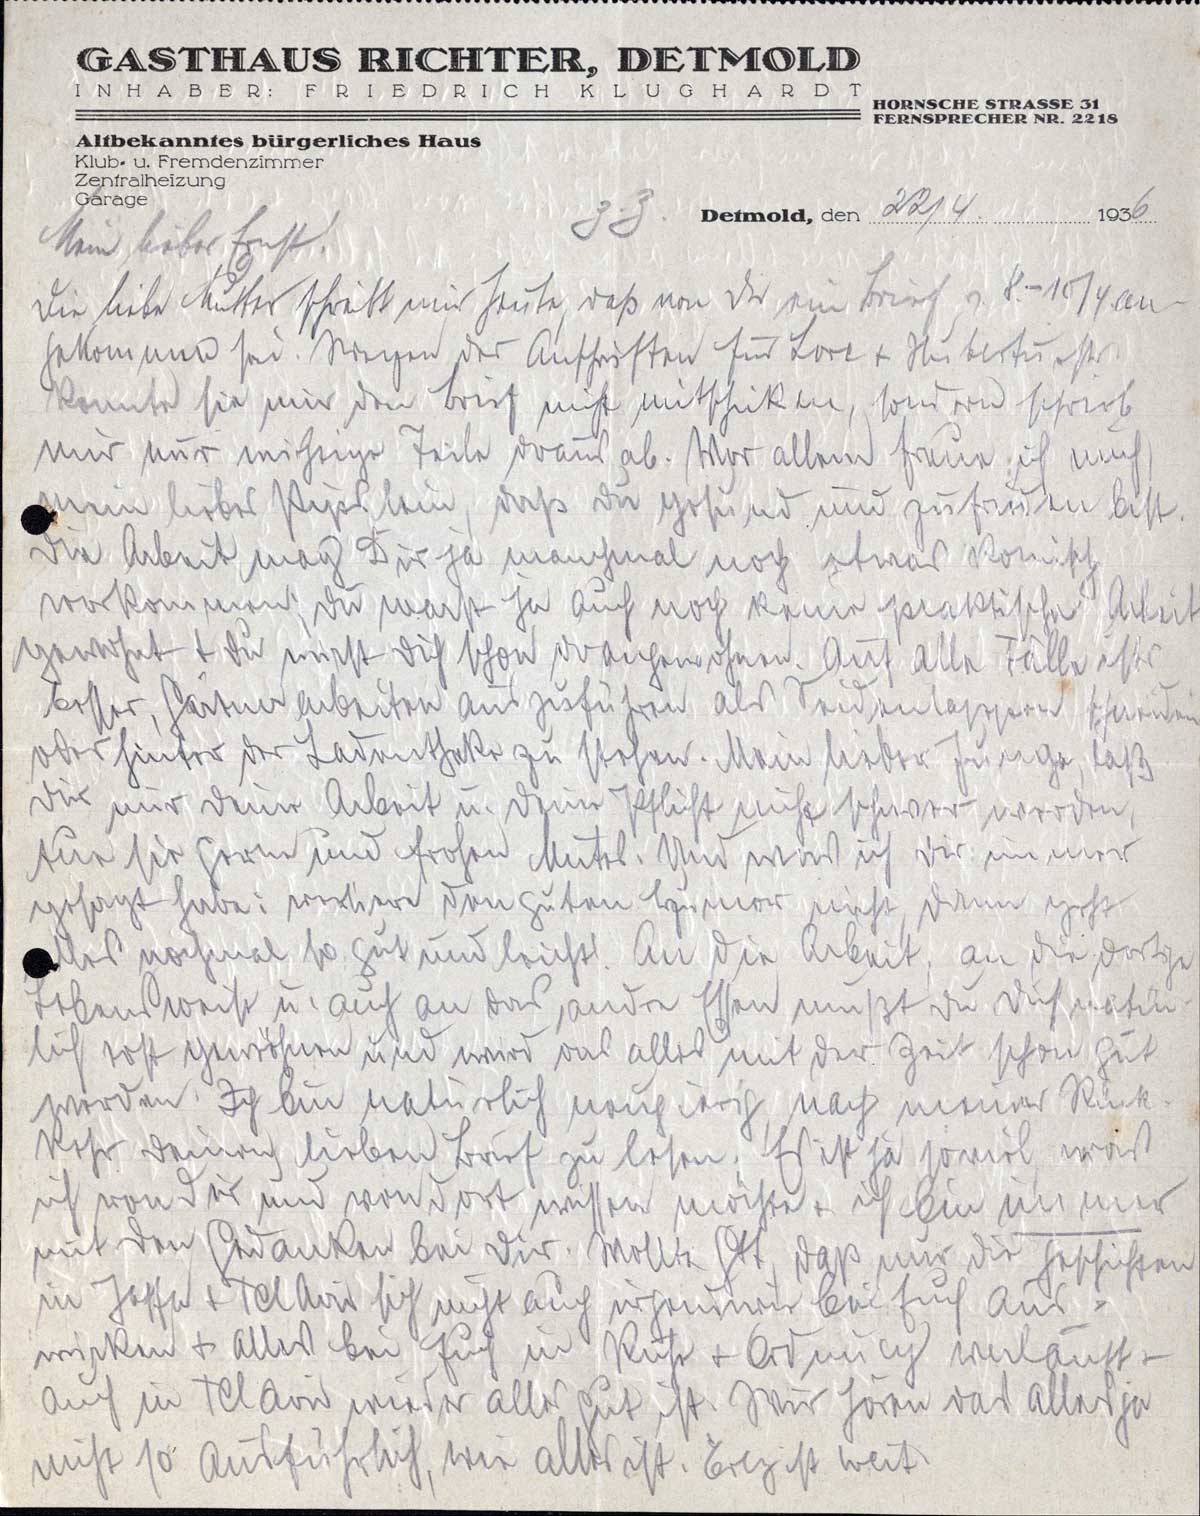 GASTHAUS RICHTER, DETMOLD
INHABER: FRIEDRICH KLUGHARDT
HORNSCHE STRASSE 31
FERNSPRECHER NR. 2218
Altbekanntes bürgerliches Haus
Klub- u. Fremdenzimmer
Zentralheizung
Garage
z. Z. Detmold, den 22/4. 1936
Mein lieber Ernst!
Die liebe Mutter schreibt mir heute, daß von Dir ein Brief v. 8.-10/4 an-
gekommen sei. Wegen der Aufschriften für Lore &
konnte sie mir den Brief nicht mitschicken, sondern schrieb
mir nur wichtige Teile draus ab. Vor allem freue ich mich,
mein lieber, daß Du gesund und zufrieden bist.
Die Arbeit mag Dir ja manchmal noch etwas komisch
vorkommen, Du warst ja auch noch keine praktische Arbeit
gewohnt & Du wirst Dich schon drangewöhnen. Auf alle Fälle ists
besser, Gärtnerarbeiten auszuführen als Seidenlappen schneiden
oder hinter der Ladentheke zu stehen. Mein lieber Junge, laß
Dir nur Deine Arbeit u. Deine Pflicht nicht schwer werden,
tue sie gerne und frohen Mutes. Und was ich Dir immer
gesagt habe: verliere den guten Humor nicht, dann geht
alles nochmal so gut und leicht. An die Arbeit, an die dortige
Lebensweise u. auch an das andre Essen mußt Du Dich natür-
lich erst gewöhnen und wird das alles mit der Zeit schon gut
werden. Ich bin natürlich neugierig, nach meiner Rück-
kehr Deinen lieben Brief zu lesen. Es ist ja soviel, was
ich von Dir und von dort wissen möchte & ich bin immer
mit den Gedanken bei Dir. Wollte Gott, daß nur die Geschichten
in Jaffa & Tel Aviv sich nicht auch irgendwie bei Euch aus-
wirken & alles bei Euch in Ruhe & Ordnung verläuft &
auch in Tel Aviv wieder alles gut ist. Wir hören das alles ja
nicht so ausführlich, wie alles ist. ist weit